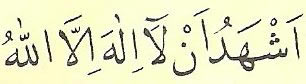 اَشْهَدُ اَنْ لَآ اِلٰهَ اِلَّا اللّٰهُ